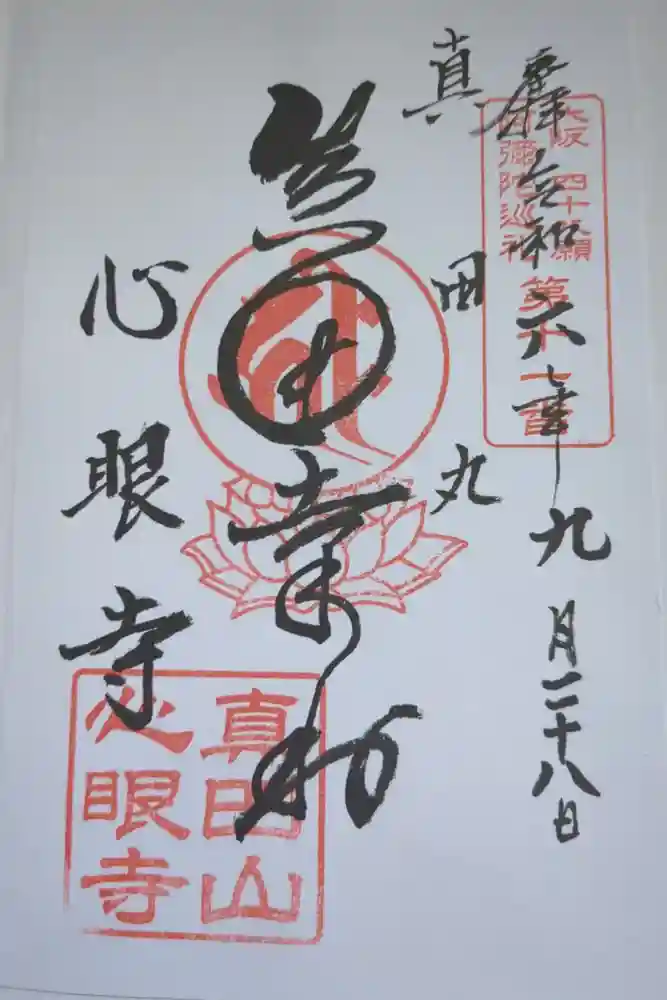 奉拝 令和六年九月二十八日
大阪四十八願
阿彌陀巡礼
第十一番
真田丸
心眼寺
真田山
心眼寺